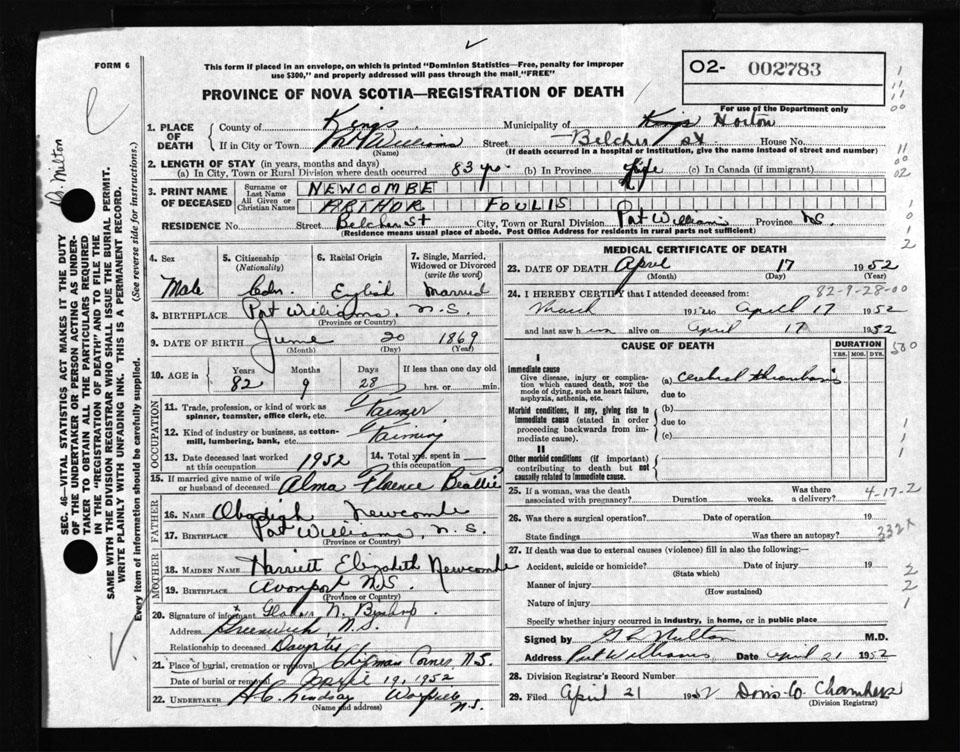 FORM 6
This form if placed in an envelope, on which is printed "Dominion Statistics—Free, penalty for improper
use $300," and properly addressed will pass through the mail "FREE"
O2- 002783
PROVINCE OF NOVA SCOTIA—REGISTRATION OF DEATH
For use of the Department only
1. PLACE OF DEATH
County of Kings Municipality of Kings Horton
If in City or Town Port Williams Street Belcher St House No.
(Name) (If death occurred in a hospital or institution, give the name instead of street and number)
2. LENGTH OF STAY (in years, months and days)
(a) In City, Town or Rural Division where death occurred 83 yrs (b) In Province Life (c) In Canada (if immigrant)
3. PRINT NAME OF DECEASED
Surname or Last Name NEWCOMBE
All Given or Christian Names ARTHUR FOULIS
RESIDENCE No. Street Belcher St City, Town or Rural Division Port Williams Province N.S.
(Residence means usual place of abode. Post Office Address for residents in rural parts not sufficient)
4. Sex 5. Citizenship (Nationality) 6. Racial Origin 7. Single, Married, Widowed or Divorced (write the word)
Male Cdn. English Married
8. BIRTHPLACE Port Williams, N.S.
(Province or Country)
9. DATE OF BIRTH June 20 1869
(Month) (Day) (Year)
10. AGE in Years Months Days If less than one day old
82 9 28 hrs. or min.
OCCUPATION
11. Trade, profession, or kind of work as spinner, teamster, office clerk, etc. Farmer
12. Kind of industry or business, as cotton-mill, lumbering, bank, etc. Farming
13. Date deceased last worked at this occupation 1952 14. Total yrs. spent in this occupation
15. If married give name of wife or husband of deceased Alma Florence Beattie
FATHER
16. NAME Obadiah Newcombe
17. BIRTHPLACE Port Williams, N.S.
(Province or Country)
MOTHER
18. MAIDEN NAME Harriett Elizabeth Newcombe
19. BIRTHPLACE Avonport N.S.
(Province or Country)
20. Signature of informant N. Bishop.
Address Greenwich, N.S.
Relationship to deceased Daughter
21. Place of burial, cremation or removal Chipman Corner, N.S.
Date of burial or removal April 19, 1952
22. UNDERTAKER H.C. Lindsay N.S.
(Name and address)
MEDICAL CERTIFICATE OF DEATH
23. DATE OF DEATH April 17 1952
(Month) (Day) (Year)
82-9-28-00
24. I HEREBY CERTIFY that I attended deceased from:
March 1952 to April 17 1952
and last saw h im alive on April 17 1952
CAUSE OF DEATH
DURATION
YRS. MOS. DYS.
I
Immediate cause
Give disease, injury or complication which caused death, not the mode of dying, such as heart failure, asphyxia, asthenia, etc.
(a) Cerebral thrombosis
due to
Morbid conditions, if any, giving rise to immediate cause (stated in order proceeding backwards from immediate cause).
(b)
due to
(c)
II
Other morbid conditions (if important) contributing to death but not causally related to immediate cause.
25. If a woman, was the death associated with pregnancy? Duration weeks. Was there a delivery?
4-17-2
26. Was there a surgical operation? Date of operation 19
State findings Was there an autopsy?
332X
27. If death was due to external causes (violence) fill in also the following:—
Accident, suicide or homicide? Date of injury 19
(State which)
Manner of injury
(How sustained)
Nature of injury
Specify whether injury occurred in industry, in home, or in public place
Signed by M.D.
Address Port Williams Date April 21 1952
28. Division Registrar's Record Number
29. Filed April 21 1952 Doris O. Chambers
(Division Registrar)
SEC. 46—VITAL STATISTICS ACT MAKES IT THE DUTY
OF THE UNDERTAKER OR PERSON ACTING AS UNDER-
TAKER TO OBTAIN ALL THE PARTICULARS REQUIRED
IN THE "REGISTRATION OF DEATH" AND TO FILE THE
SAME WITH THE DIVISION REGISTRAR WHO SHALL ISSUE THE BURIAL PERMIT.
WRITE PLAINLY WITH UNFADING INK. THIS IS A PERMANENT RECORD.
Every item of information should be carefully supplied. (See reverse side for instructions.)